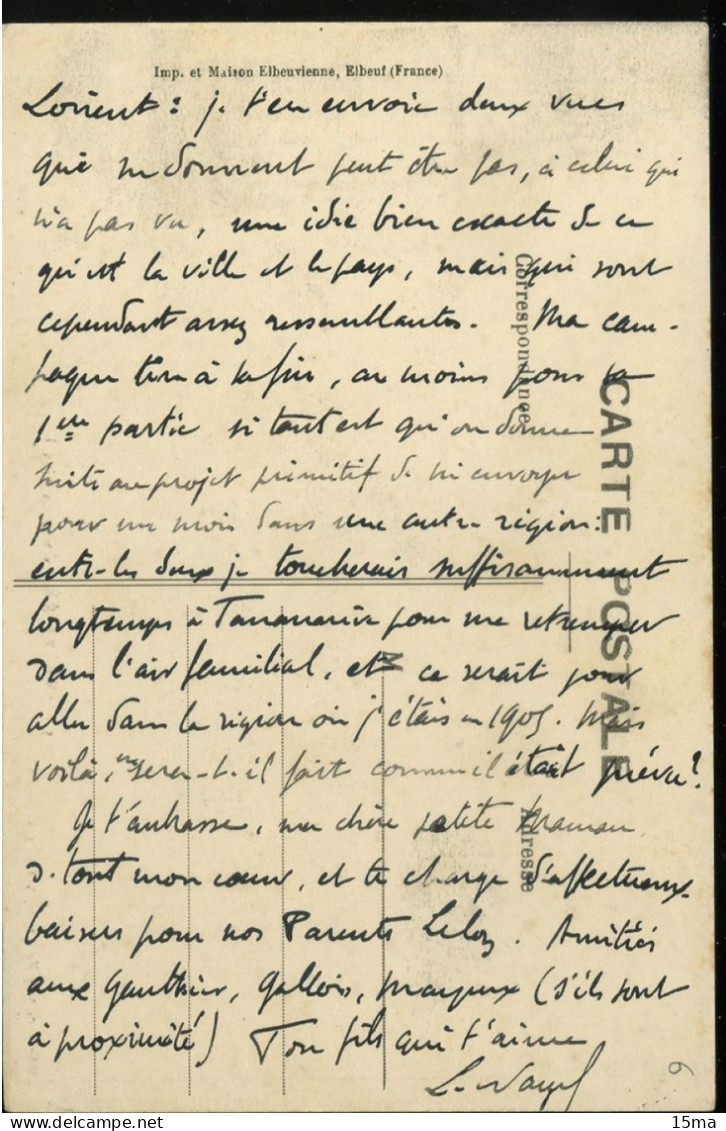 Imp. et Maison Elbeuvienne, Elbeuf (France)
Lorient : je t'en envoie deux vues
que ne donnent peut être pas, à celui qui
n'a pas vu, une idée bien exacte de ce
qu'est la ville et le pays, mais qui sont
cependant assez ressemblantes. Ma cam-
pagne tire à sa fin, au moins pour la
1ère partie si tant est qu'on donne
suite au projet primitif de m'envoyer
pour un mois dans une autre région :
entre les deux je toucherais suffisamment
longtemps à Tananarive pour me retremper
dans l'air familial, et ce serait pour
aller dans la région où j'étais en 1905. Mais
voilà, en sera-t-il fait comme il était prévu ?
Je t'embrasse, ma chère petite Maman
de tout mon cœur, et te charge d'affectueux
baisers pour nos Parents . Amitiés
aux Gauthier, Gallois, (s'ils sont
à proximité) Ton fils qui t'aime
CARTE POSTALE
Correspondance
Adresse
6
15ma